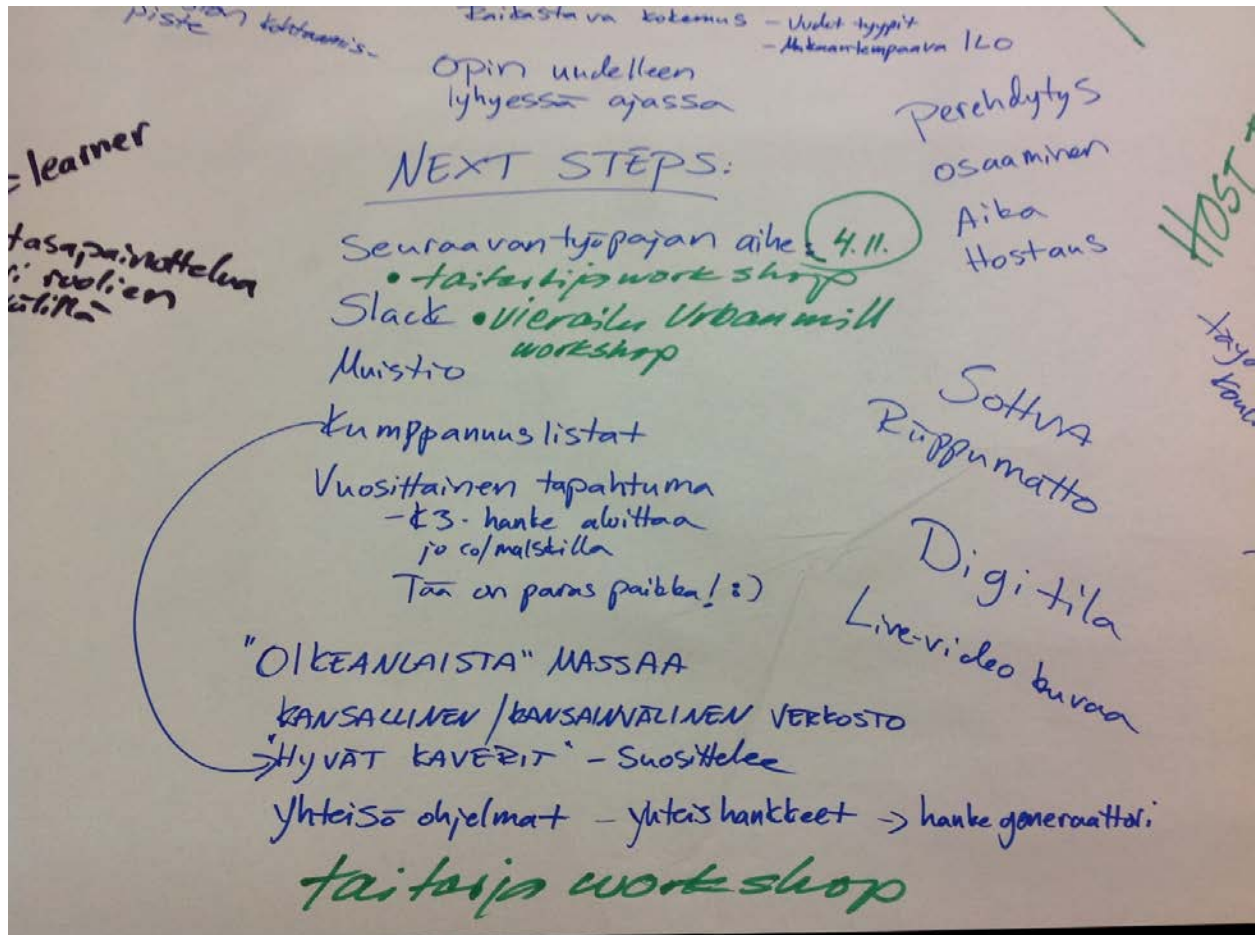 piste
kohtaamis-
kokemus - Uudet tyypit
ILO
Opin uudelleen
lyhyessä ajassa
= learner
tasapainottelua
roolien
NEXT STEPS:
Seuraavan työpajan aihe: 4.11.
workshop
Slack • vierailu Urbanmill
workshop
Muistio
Kumppanuuslistat
Vuosittainen tapahtuma
- K3-hanke aloittaa
jo
Tää on paras paikka! :)
"OIKEANLAISTA" MASSAA
KANSALLINEN / KANSAINVÄLINEN VERKOSTO
"HYVÄT KAVERIT" - Suosittelee
Yhteisö ohjelmat - yhteishankkeet -> hankegeneraattori
workshop
perehdytys
osaaminen
Aika
Hostaus
HOST
Sohva
Riippumatto
Digitila
Live-video kuvaa